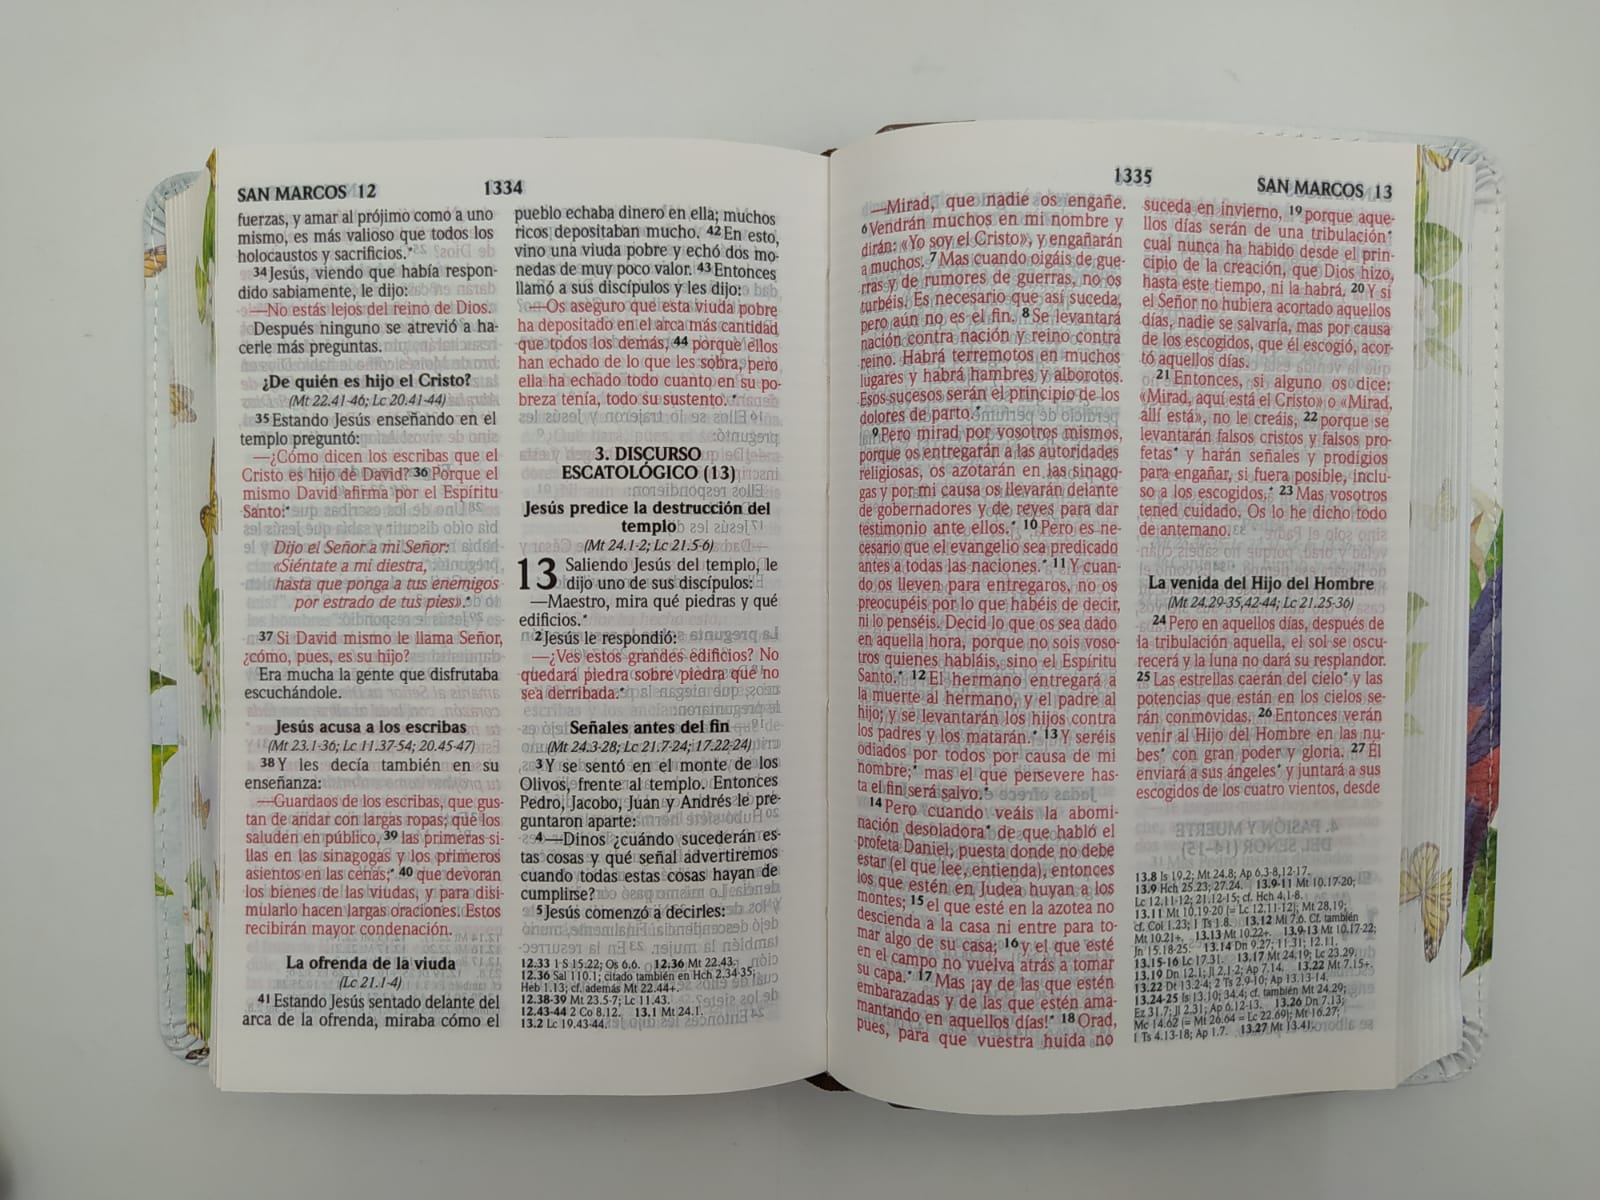 SAN MARCOS 12
1334
fuerzas, y amar al prójimo como a uno
mismo, es más valioso que todos los
holocaustos y sacrificios.*
34 Jesús, viendo que había respon-
dido sabiamente, le dijo:
—No estás lejos del reino de Dios.
Después ninguno se atrevió a ha-
cerle más preguntas.
¿De quién es hijo el Cristo?
(Mt 22.41-46; Lc 20.41-44)
35 Estando Jesús enseñando en el
templo preguntó:
—¿Cómo dicen los escribas que el
Cristo es hijo de David? 36 Porque el
mismo David afirma por el Espíritu
Santo:*
Dijo el Señor a mi Señor:
«Siéntate a mi diestra,
hasta que ponga a tus enemigos
por estrado de tus pies».*
37 Si David mismo le llama Señor,
¿cómo, pues, es su hijo?
Era mucha la gente que disfrutaba
escuchándole.
Jesús acusa a los escribas
(Mt 23.1-36; Lc 11.37-54; 20.45-47)
38 Y les decía también en su
enseñanza:
—Guardaos de los escribas, que gus-
tan de andar con largas ropas; que los
saluden en público, 39 las primeras si-
llas en las sinagogas y los primeros
asientos en las cenas;* 40 que devoran
los bienes de las viudas, y para disi-
mularlo hacen largas oraciones. Estos
recibirán mayor condenación.
La ofrenda de la viuda
(Lc 21.1-4)
41 Estando Jesús sentado delante del
arca de la ofrenda, miraba cómo el
pueblo echaba dinero en ella; muchos
ricos depositaban mucho. 42 En esto,
vino una viuda pobre y echó dos mo-
nedas de muy poco valor. 43 Entonces
llamó a sus discípulos y les dijo:
—Os aseguro que esta viuda pobre
ha depositado en el arca más cantidad
que todos los demás, 44 porque ellos
han echado de lo que les sobra, pero
ella ha echado todo cuanto en su po-
breza tenía, todo su sustento.*
3. DISCURSO
ESCATOLÓGICO (13)
Jesús predice la destrucción del
templo
(Mt 24.1-2; Lc 21.5-6)
13 Saliendo Jesús del templo, le
dijo uno de sus discípulos:
—Maestro, mira qué piedras y qué
edificios.*
2 Jesús le respondió:
—¿Ves estos grandes edificios? No
quedará piedra sobre piedra que no
sea derribada.*
Señales antes del fin
(Mt 24.3-28; Lc 21.7-24; 17.22-24)
3 Y se sentó en el monte de los
Olivos, frente al templo. Entonces
Pedro, Jacobo, Juan y Andrés le pre-
guntaron aparte:
4 —Dinos ¿cuándo sucederán es-
tas cosas y qué señal advertiremos
cuando todas estas cosas hayan de
cumplirse?
5 Jesús comenzó a decirles:
12.33 1 S 15.22; Os 6.6. 12.36 Mt 22.43.
12.36 Sal 110.1; citado también en Hch 2.34-35;
Heb 1.13; cf. además Mt 22.44+.
12.38-39 Mt 23.5-7; Lc 11.43.
12.43-44 2 Co 8.12. 13.1 Mt 24.1.
13.2 Lc 19.43-44.
1335
SAN MARCOS 13
—Mirad, que nadie os engañe.
6 Vendrán muchos en mi nombre y
dirán: «Yo soy el Cristo», y engañarán
a muchos. 7 Mas cuando oigáis de gue-
rras y de rumores de guerras, no os
turbéis. Es necesario que así suceda,
pero aún no es el fin. 8 Se levantará
nación contra nación y reino contra
reino. Habrá terremotos en muchos
lugares y habrá hambres y alborotos.
Esos sucesos serán el principio de los
dolores de parto.*
9 Pero mirad por vosotros mismos,
porque os entregarán a las autoridades
religiosas, os azotarán en las sinago-
gas y por mi causa os llevarán delante
de gobernadores y de reyes para dar
testimonio ante ellos.* 10 Pero es ne-
cesario que el evangelio sea predicado
antes a todas las naciones.* 11 Y cuan-
do os lleven para entregaros, no os
preocupéis por lo que habéis de decir,
ni lo penséis. Decid lo que os sea dado
en aquella hora, porque no sois voso-
tros quienes habláis, sino el Espíritu
Santo.* 12 El hermano entregará a
la muerte al hermano, y el padre al
hijo; y se levantarán los hijos contra
los padres y los matarán.* 13 Y seréis
odiados por todos por causa de mi
nombre;* mas el que persevere has-
ta el fin será salvo.*
14 Pero cuando veáis la abomi-
nación desoladora* de que habló el
profeta Daniel, puesta donde no debe
estar (el que lee, entienda), entonces
los que estén en Judea huyan a los
montes; 15 el que esté en la azotea no
descienda a la casa ni entre para to-
mar algo de su casa; 16 y el que esté
en el campo no vuelva atrás a tomar
su capa.* 17 Mas ¡ay de las que estén
embarazadas y de las que estén ama-
mantando en aquellos días!* 18 Orad,
pues, para que vuestra huida no
suceda en invierno, 19 porque aque-
llos días serán de una tribulación*
cual nunca ha habido desde el prin-
cipio de la creación, que Dios hizo,
hasta este tiempo, ni la habrá. 20 Y si
el Señor no hubiera acortado aquellos
días, nadie se salvaría, mas por causa
de los escogidos, que él escogió, acor-
tó aquellos días.
21 Entonces, si alguno os dice:
«Mirad, aquí está el Cristo» o «Mirad,
allí está», no le creáis, 22 porque se
levantarán falsos cristos y falsos pro-
fetas* y harán señales y prodigios
para engañar, si fuera posible, inclu-
so a los escogidos.* 23 Mas vosotros
tened cuidado. Os lo he dicho todo
de antemano.
La venida del Hijo del Hombre
(Mt 24.29-35,42-44; Lc 21.25-36)
24 Pero en aquellos días, después de
la tribulación aquella, el sol se oscu-
recerá y la luna no dará su resplandor.
25 Las estrellas caerán del cielo* y las
potencias que están en los cielos se-
rán conmovidas. 26 Entonces verán
venir al Hijo del Hombre en las nu-
bes* con gran poder y gloria. 27 Él
enviará a sus ángeles* y juntará a sus
escogidos de los cuatro vientos, desde
13.8 Is 19.2; Mt 24.8; Ap 6.3-8,12-17.
13.9 Hch 25.23; 27.24. 13.9-11 Mt 10.17-20;
Lc 12.11-12; 21.12-15; cf. Hch 4.1-8.
13.11 Mt 10.19-20 (= Lc 12.11-12); Mt 28.19;
cf. Col 1.23; 1 Ts 1.8. 13.12 Mi 7.6. Cf. también
Mt 10.21+. 13.13 Mt 10.22+. 13.9-13 Mt 10.17-22;
Jn 15.18-25. 13.14 Dn 9.27; 11.31; 12.11.
13.15-16 Lc 17.31. 13.17 Mt 24.19; Lc 23.29.
13.19 Dn 12.1; Jl 2.1-2; Ap 7.14. 13.22 Mt 7.15+.
13.22 Dt 13.2-4; 2 Ts 2.9-10; Ap 13.13-14.
13.24-25 Is 13.10; 34.4; cf. también Mt 24.29;
Ez 31.7; Jl 2.31; Ap 6.12-13. 13.26 Dn 7.13;
Mc 14.62 (= Mt 26.64 = Lc 22.69); Mt 16.27;
1 Ts 4.13-18; Ap 1.7. 13.27 Mt 13.41.